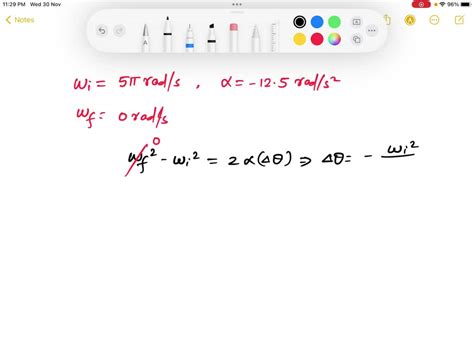 11:29 PM Wed 30 Nov
96%
Notes
A
ωi = 5π rad/s , α = -12.5 rad/s²
ωf = 0 rad/s
0
ωf² - ωi² = 2α(Δθ) ⇒ Δθ = - ωi²